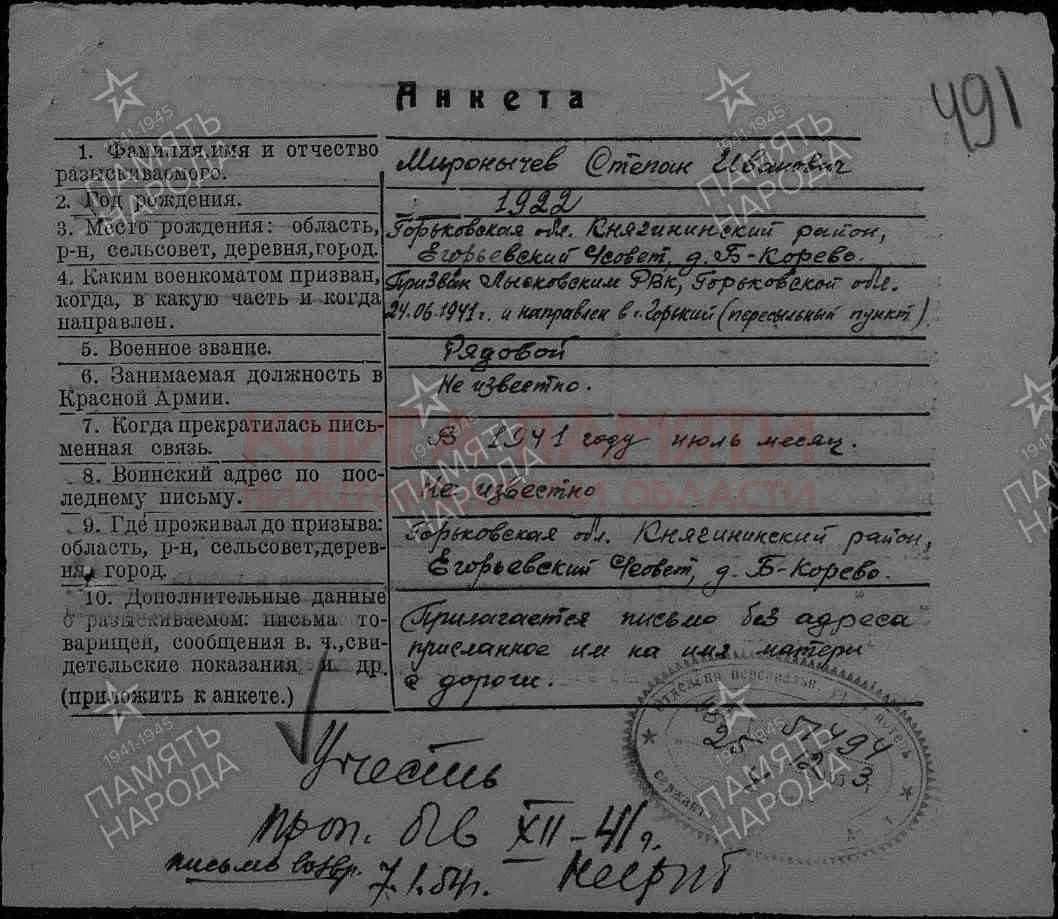 Анкета
491
1. Фамилия, имя и отчество
разыскиваемого.
Миронычев Степан Иванович
2. Год рождения.
1922
3. Место рождения: область,
р-н, сельсовет, деревня, город.
Горьковская обл. Княгининский район,
Егорьевский с/совет, д. Б-Корево.
4. Каким военкоматом призван,
когда, в какую часть и когда
направлен.
Призван Лысковским РВК, Горьковской обл.
24.06.1941 г. и направлен в г. Горький (пересыльный пункт).
5. Военное звание.
Рядовой
6. Занимаемая должность в
Красной Армии.
Не известно.
7. Когда прекратилась пись-
менная связь.
В 1941 году июль месяц.
8. Воинский адрес по пос-
леднему письму.
Не известно
9. Где проживал до призыва:
область, р-н, сельсовет, дерев-
ня, город.
Горьковская обл. Княгининский район,
Егорьевский с/совет, д. Б-Корево.
10. Дополнительные данные
о разыскиваемом: письма то-
варищей, сообщения в. ч., сви-
детельские показания и др.
(приложить к анкете.)
Прилагается письмо без адреса
присланное им на имя матери
с дороги.
57494
Учесть
проп. б/в XII-41 г.
письмо возвр. 7.1.54 г.
КНИГА ПАМЯТИ
НИЖЕГОРОДСКОЙ ОБЛАСТИ
1941-1945
ПАМЯТЬ
НАРОДА
1941-1945
ПАМЯТЬ
НАРОДА
1941-1945
ПАМЯТЬ
НАРОДА
1941-1945
ПАМЯТЬ
НАРОДА
1941-1945
ПАМЯТЬ
НАРОДА